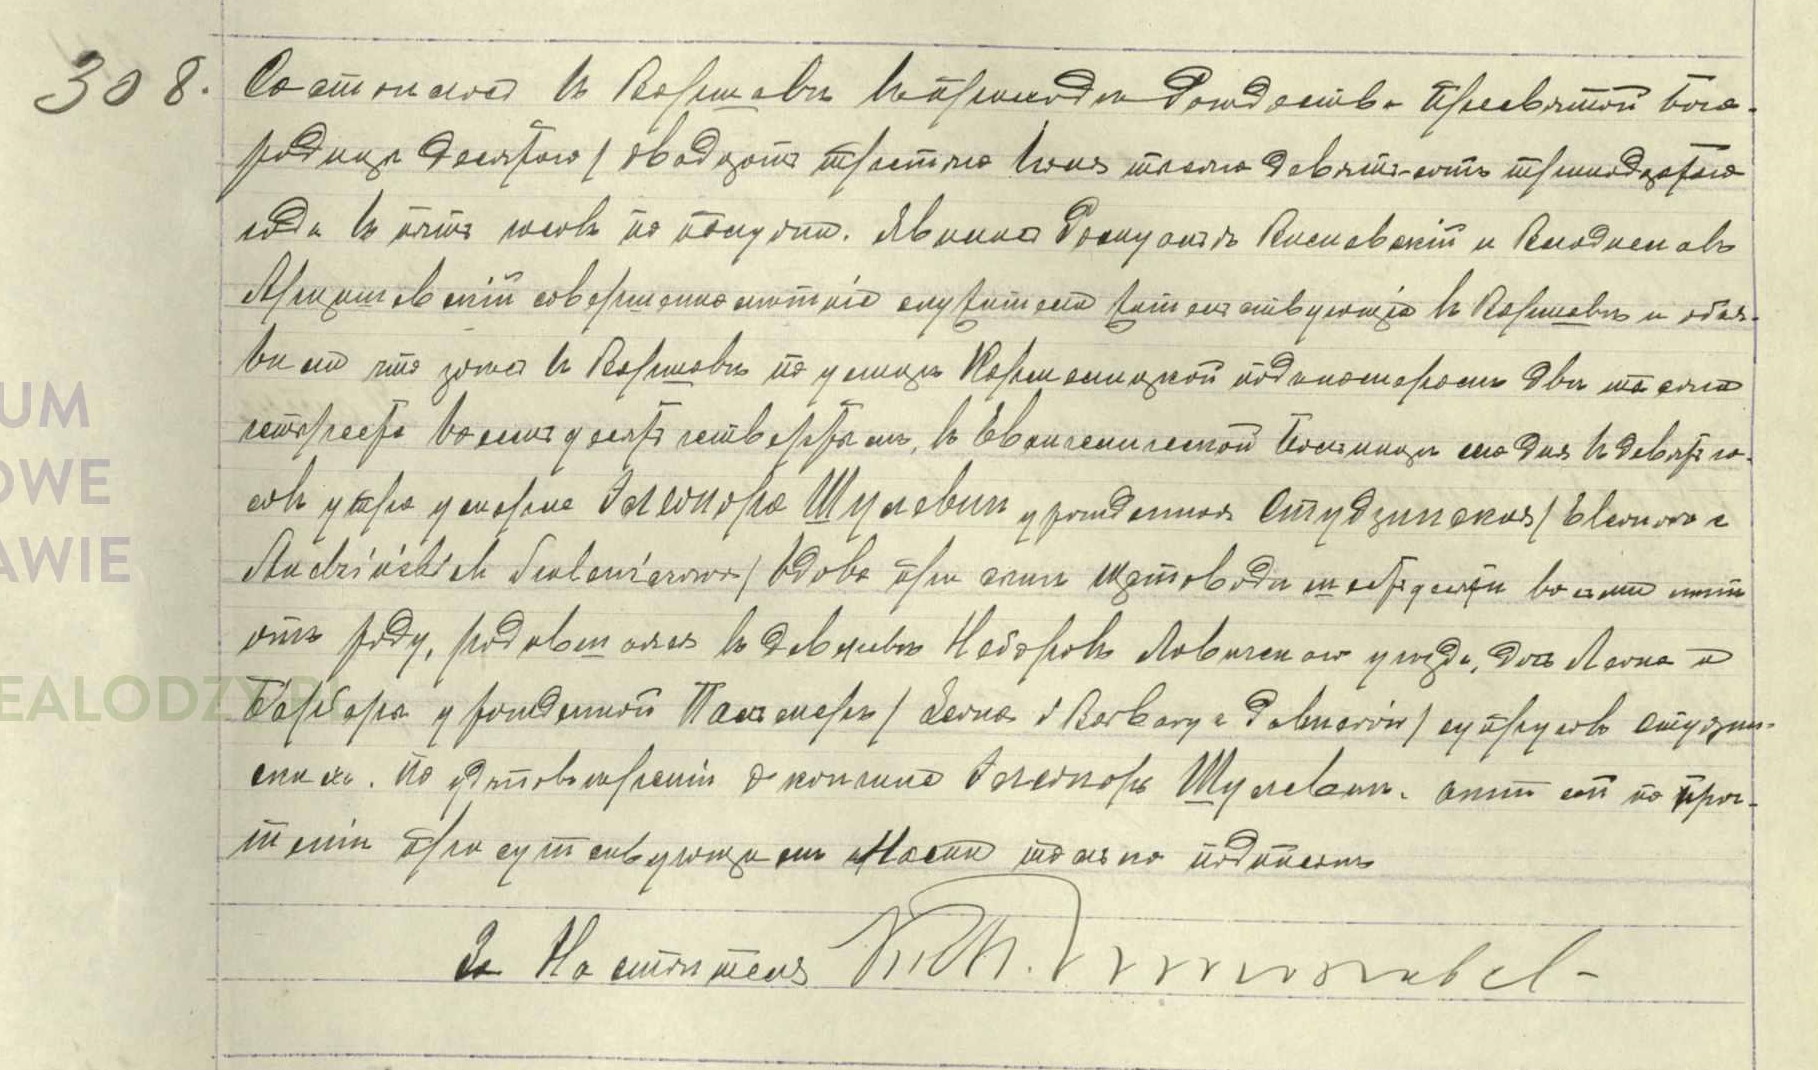 308. Состоялось въ Варшавѣ въ приходѣ Рождества Пресвятой Бого-
родицы десятого / двадцать третьяго Іюня тысяча девятьсотъ тринадцатого
года въ пять часовъ по полудни. Явились Ромуальдъ Висневскій и Владиславъ
совершеннолѣтніе служители жительствующіе въ Варшавѣ и объя-
вили что сего въ Варшавѣ по улицѣ Кармелицкой подъ номеромъ двѣ тысячи
четыреста восемьдесятъ четвертымъ, въ Евангелической Больницѣ сего дня въ девять ча-
совъ утра умерла Элеонора Шулевичъ урожденная Студзинская / Eleonora z
Studzińskich Szulewiczowa / вдова при сынѣ шестьдесятъ восемь лѣтъ
отъ роду, родившаяся въ деревнѣ Неборовъ Ловичскаго уѣзда, дочь Леона и
Барбары урожденной Пальмеръ / Leona i Barbary z Palmerów / супруговъ Студзин-
скихъ. По удостовѣреніи о кончинѣ Элеоноры Шулевичъ, актъ сей по проч-
теніи присутствующимъ Нами только подписанъ
За Настоятеля
UM
OWE
AWIE
EALODZY.PL